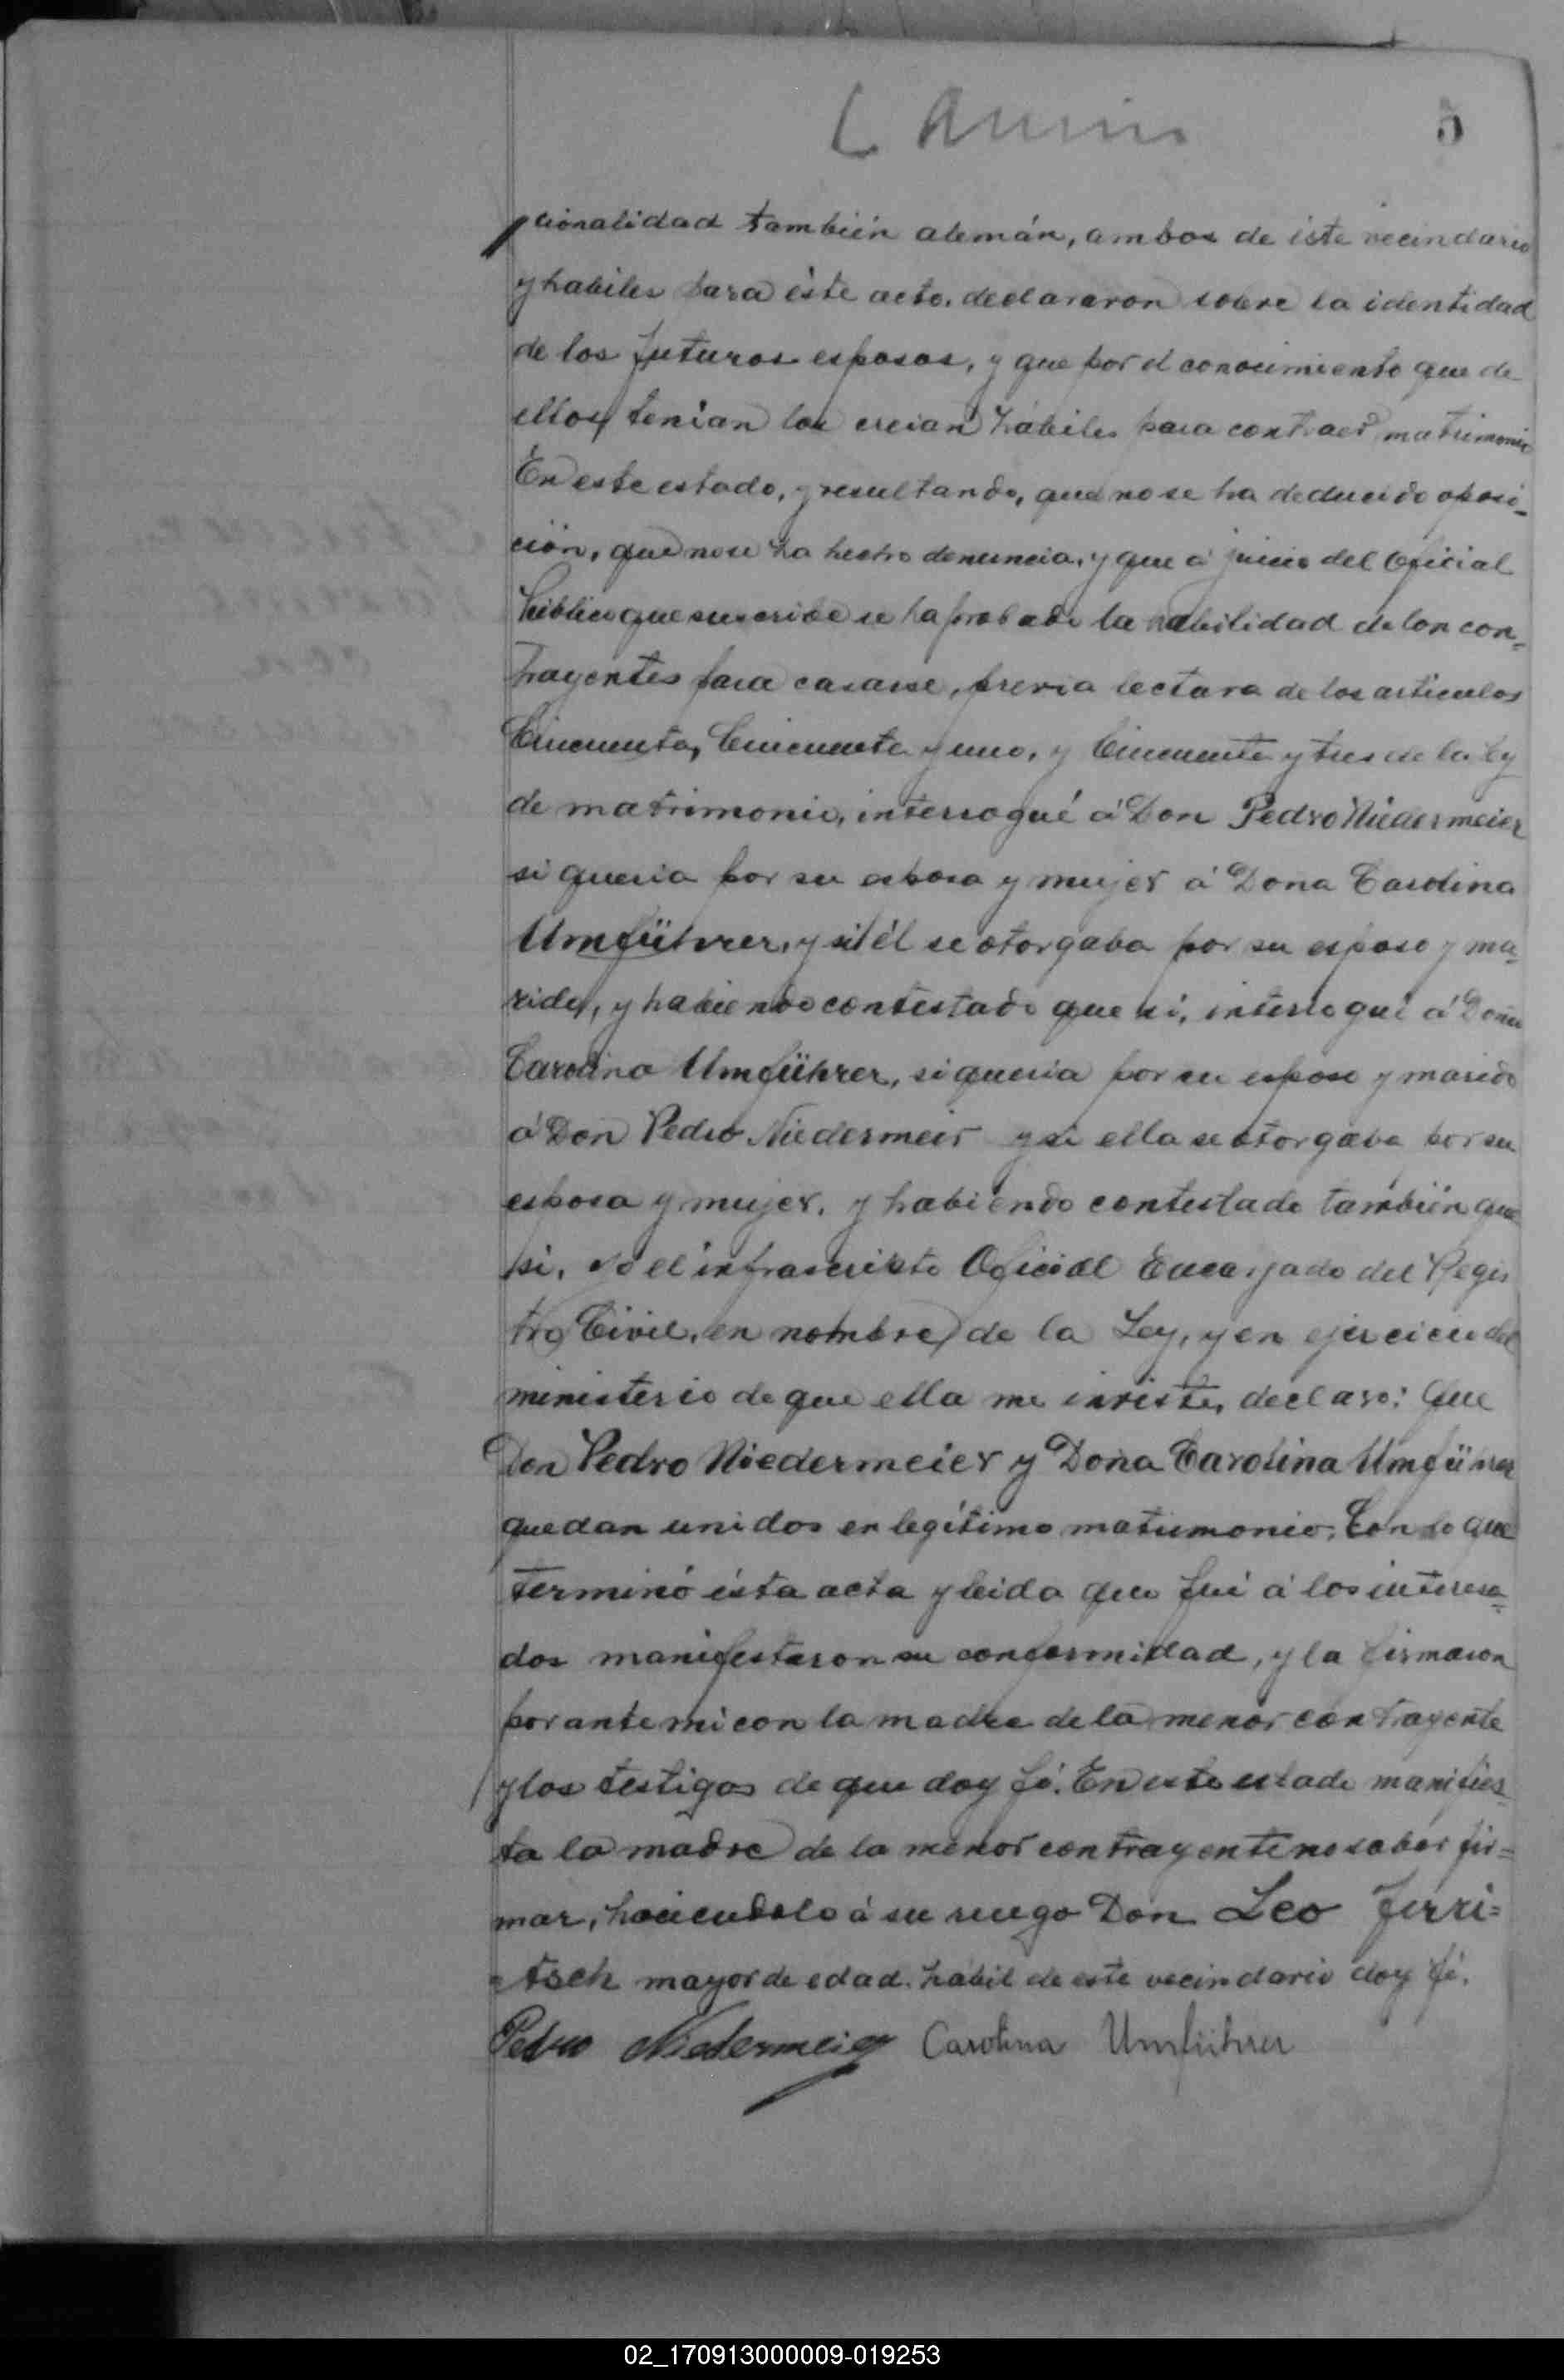 5
cionalidad también alemán, ambos de éste vecindario
y habiles para éste acto, declararon sobre la identidad
de los futuros esposos, y que por el conocimiento que de
ellos tenian los creian hábiles para contraer matrimonio
En este estado, y resultando, que no se ha deducido oposi-
ción, que no se ha hecho denuncia, y que á juicio del Oficial
Público que suscribe se ha probado la habilidad de los con-
trayentes para casarse, previa lectura de los articulos
Cincuenta, Cincuenta y uno, y Cincuenta y tres de la ley
de matrimonio, interrogué á Don Pedro Niedermeier
si queria por su esposa y mujer á Doña Carolina
Umführer, y si él se otorgaba por su esposo y ma-
rido, y habiendo contestado que si, interrogué á Doña
Carolina Umführer, si queria por su esposo y marido
á Don Pedro Niedermeir y si ella se otorgaba por su
esposa y mujer, y habiendo contestado también que
si, yo el infrascripto Oficial Encargado del Regis
tro Civil, en nombre de la Ley, y en ejercicio del
ministerio de que ella me inviste, declaro: Que
Don Pedro Niedermeier y Doña Carolina Umführer
quedan unidos en legítimo matrimonio. Con lo que
terminó ésta acta y leida que fué á los interesa-
dos manifestaron su conformidad, y la firmaron
por ante mi con la madre de la menor contrayente
y los testigos de que doy fé. En este estado manifies-
ta la madre de la menor contrayente no saber fir=
mar, haciendolo á su ruego Don Leo Jerri=
=tsch mayor de edad, hábil de este vecindario doy fé.
Pedro Niedermeier Carolina Umführer
02_170913000009-019253